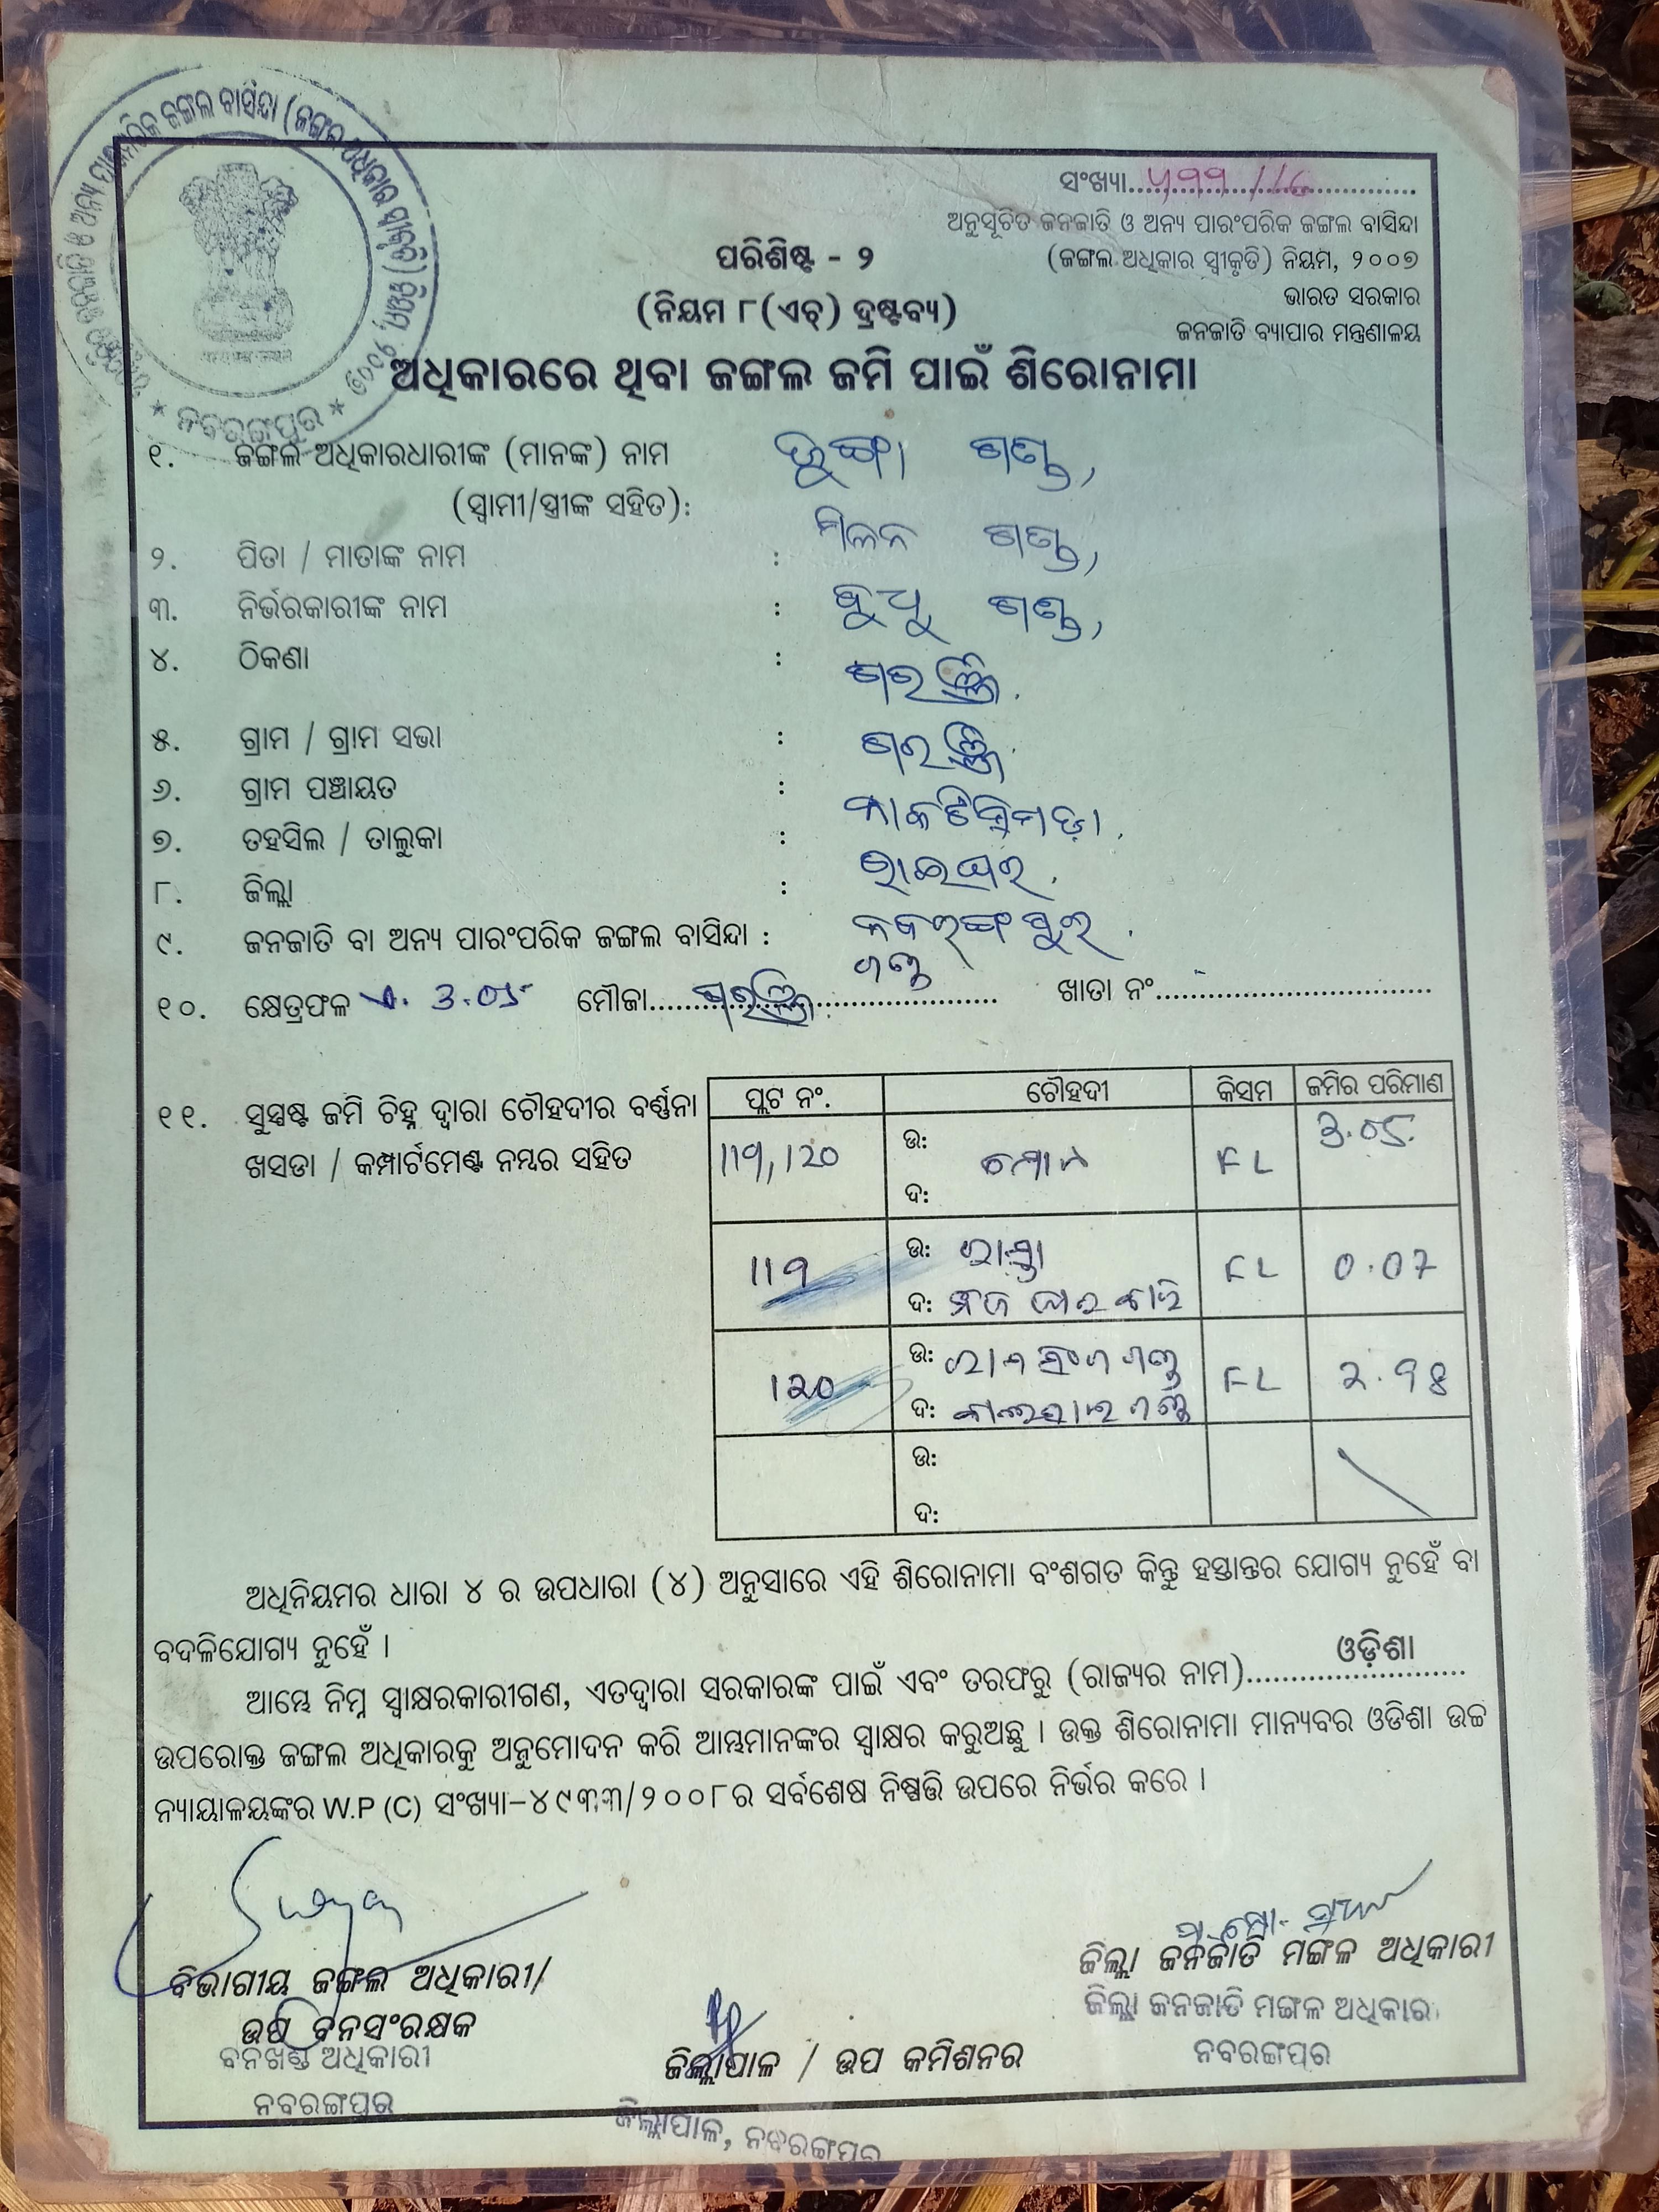 ସଂଖ୍ୟା
ଅନୁସୂଚିତ ଜନଜାତି ଓ ଅନ୍ୟ ପାରଂପରିକ ଜଙ୍ଗଲ ବାସିନ୍ଦା
(ଜଙ୍ଗଲ ଅଧିକାର ସ୍ୱୀକୃତି) ନିୟମ, ୨୦୦୭
ଭାରତ ସରକାର
ଜନଜାତି ବ୍ୟାପାର ମନ୍ତ୍ରଣାଳୟ
ପରିଶିଷ୍ଟ - ୨
(ନିୟମ ୮(ଏଚ୍) ଦ୍ରଷ୍ଟବ୍ୟ)
ଅଧିକାରରେ ଥିବା ଜଙ୍ଗଲ ଜମି ପାଇଁ ଶିରୋନାମା
ନବରଙ୍ଗପୁର
୧. ଜଙ୍ଗଲ ଅଧିକାରଧାରୀଙ୍କ (ମାନଙ୍କ) ନାମ
(ସ୍ୱାମୀ/ସ୍ତ୍ରୀଙ୍କ ସହିତ):
୨. ପିତା / ମାତାଙ୍କ ନାମ : ମିଳନ ଗଣ୍ଡ,
୩. ନିର୍ଭରକାରୀଙ୍କ ନାମ : ବୁଧୁ ଗଣ୍ଡ,
୪. ଠିକଣା :
୫. ଗ୍ରାମ / ଗ୍ରାମ ସଭା :
୬. ଗ୍ରାମ ପଞ୍ଚାୟତ :
୭. ତହସିଲ / ତାଲୁକା : ରାଇଘର
୮. ଜିଲ୍ଲା : ନବରଙ୍ଗପୁର
୯. ଜନଜାତି ବା ଅନ୍ୟ ପାରଂପରିକ ଜଙ୍ଗଲ ବାସିନ୍ଦା : ଗଣ୍ଡ
୧୦. କ୍ଷେତ୍ରଫଳ ଏ. 3.05 ମୌଜା ଖାତା ନଂ
୧୧. ସୁସ୍ପଷ୍ଟ ଜମି ଚିହ୍ନ ଦ୍ୱାରା ଚୌହଦୀର ବର୍ଣ୍ଣନା
ଖସଡା / କମ୍ପାର୍ଟମେଣ୍ଟ ନମ୍ଭର ସହିତ
ପ୍ଲଟ ନଂ. ଚୌହଦୀ କିସମ ଜମିର ପରିମାଣ
119, 120 ଉ: ଦ: FL 3.05
119 ଉ: ରାସ୍ତା ଦ: FL 0.07
120 ଉ: ଦ: FL 2.98
ଉ:
ଦ:
ଅଧିନିୟମର ଧାରା ୪ ର ଉପଧାରା (୪) ଅନୁସାରେ ଏହି ଶିରୋନାମା ବଂଶଗତ କିନ୍ତୁ ହସ୍ତାନ୍ତର ଯୋଗ୍ୟ ନୁହେଁ ବା
ବଦଳିଯୋଗ୍ୟ ନୁହେଁ ।
ଆମ୍ଭେ ନିମ୍ନ ସ୍ୱାକ୍ଷରକାରୀଗଣ, ଏତଦ୍ୱାରା ସରକାରଙ୍କ ପାଇଁ ଏବଂ ତରଫରୁ (ରାଜ୍ୟର ନାମ) ଓଡ଼ିଶା
ଉପରୋକ୍ତ ଜଙ୍ଗଲ ଅଧିକାରକୁ ଅନୁମୋଦନ କରି ଆମ୍ଭମାନଙ୍କର ସ୍ୱାକ୍ଷର କରୁଅଛୁ । ଉକ୍ତ ଶିରୋନାମା ମାନ୍ୟବର ଓଡିଶା ଉଚ୍ଚ
ନ୍ୟାୟାଳୟଙ୍କର W.P (C) ସଂଖ୍ୟା-୪୯୩୩/୨୦୦୮ର ସର୍ବଶେଷ ନିଷ୍ପତ୍ତି ଉପରେ ନିର୍ଭର କରେ ।
ବିଭାଗୀୟ ଜଙ୍ଗଲ ଅଧିକାରୀ/
ଉପ ବନସଂରକ୍ଷକ
ବନଖଣ୍ଡ ଅଧିକାରୀ
ନବରଙ୍ଗପୁର
ଜିଲ୍ଲାପାଳ / ଉପ କମିଶନର
ଜିଲ୍ଲାପାଳ, ନବରଙ୍ଗପୁର
ଜିଲ୍ଲା ଜନଜାତି ମଙ୍ଗଳ ଅଧିକାରୀ
ଜିଲ୍ଲା ଜନଜାତି ମଙ୍ଗଳ ଅଧିକାରୀ
ନବରଙ୍ଗପୁର